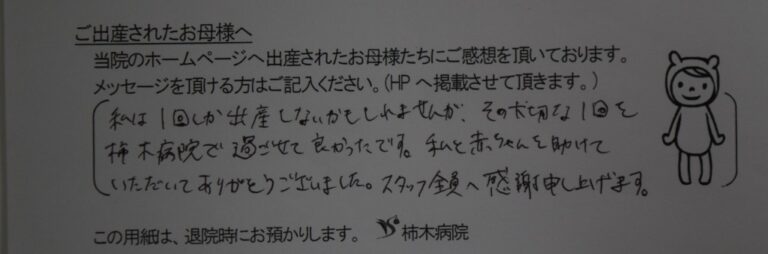 ご出産されたお母様へ
当院のホームページへ出産されたお母様たちにご感想を頂いております。
メッセージを頂ける方はご記入ください。(HPへ掲載させて頂きます。)
私は1回しか出産しないかもしれませんが、その大切な1回を
柿木病院で過ごせて良かったです。私と赤ちゃんを助けて
いただいてありがとうございました。スタッフ全員へ感謝申し上げます。
この用紙は、退院時にお預かりします。 柿木病院